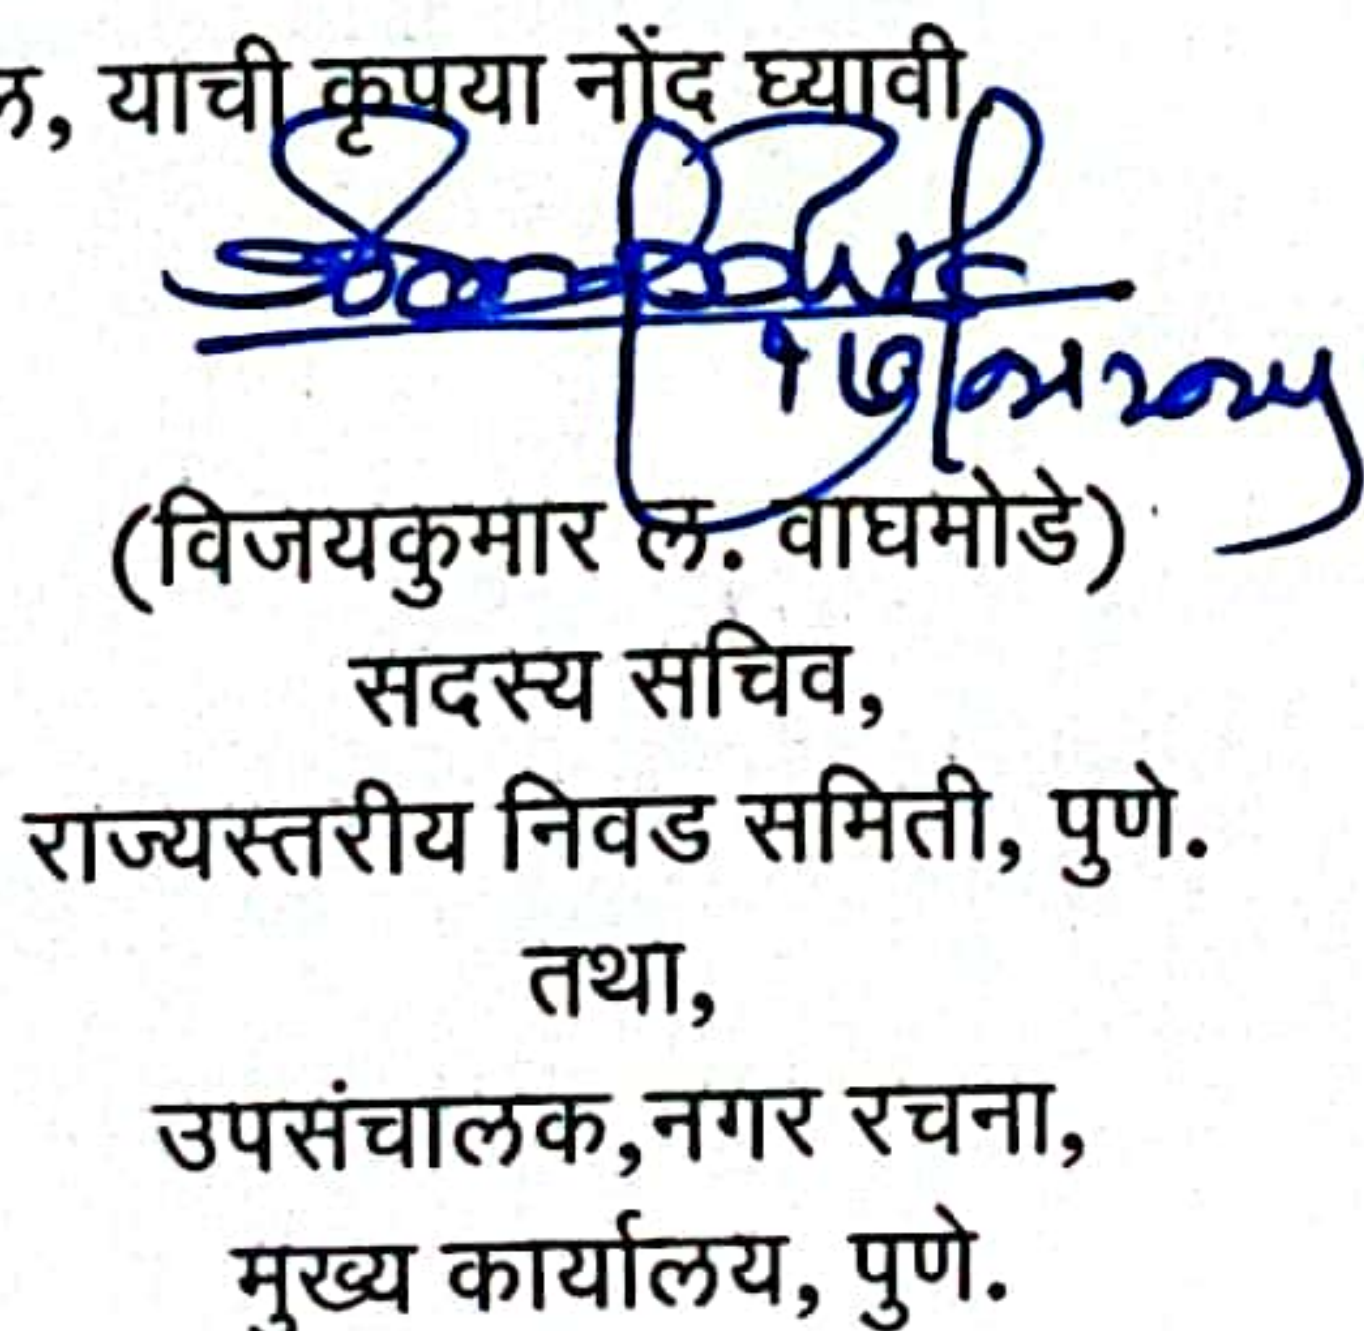 याची कृपया नोंद घ्यावी
(विजयकुमार ल. वाघमोडे)
सदस्य सचिव,
राज्यस्तरीय निवड समिती, पुणे.
तथा,
उपसंचालक,नगर रचना,
मुख्य कार्यालय, पुणे.